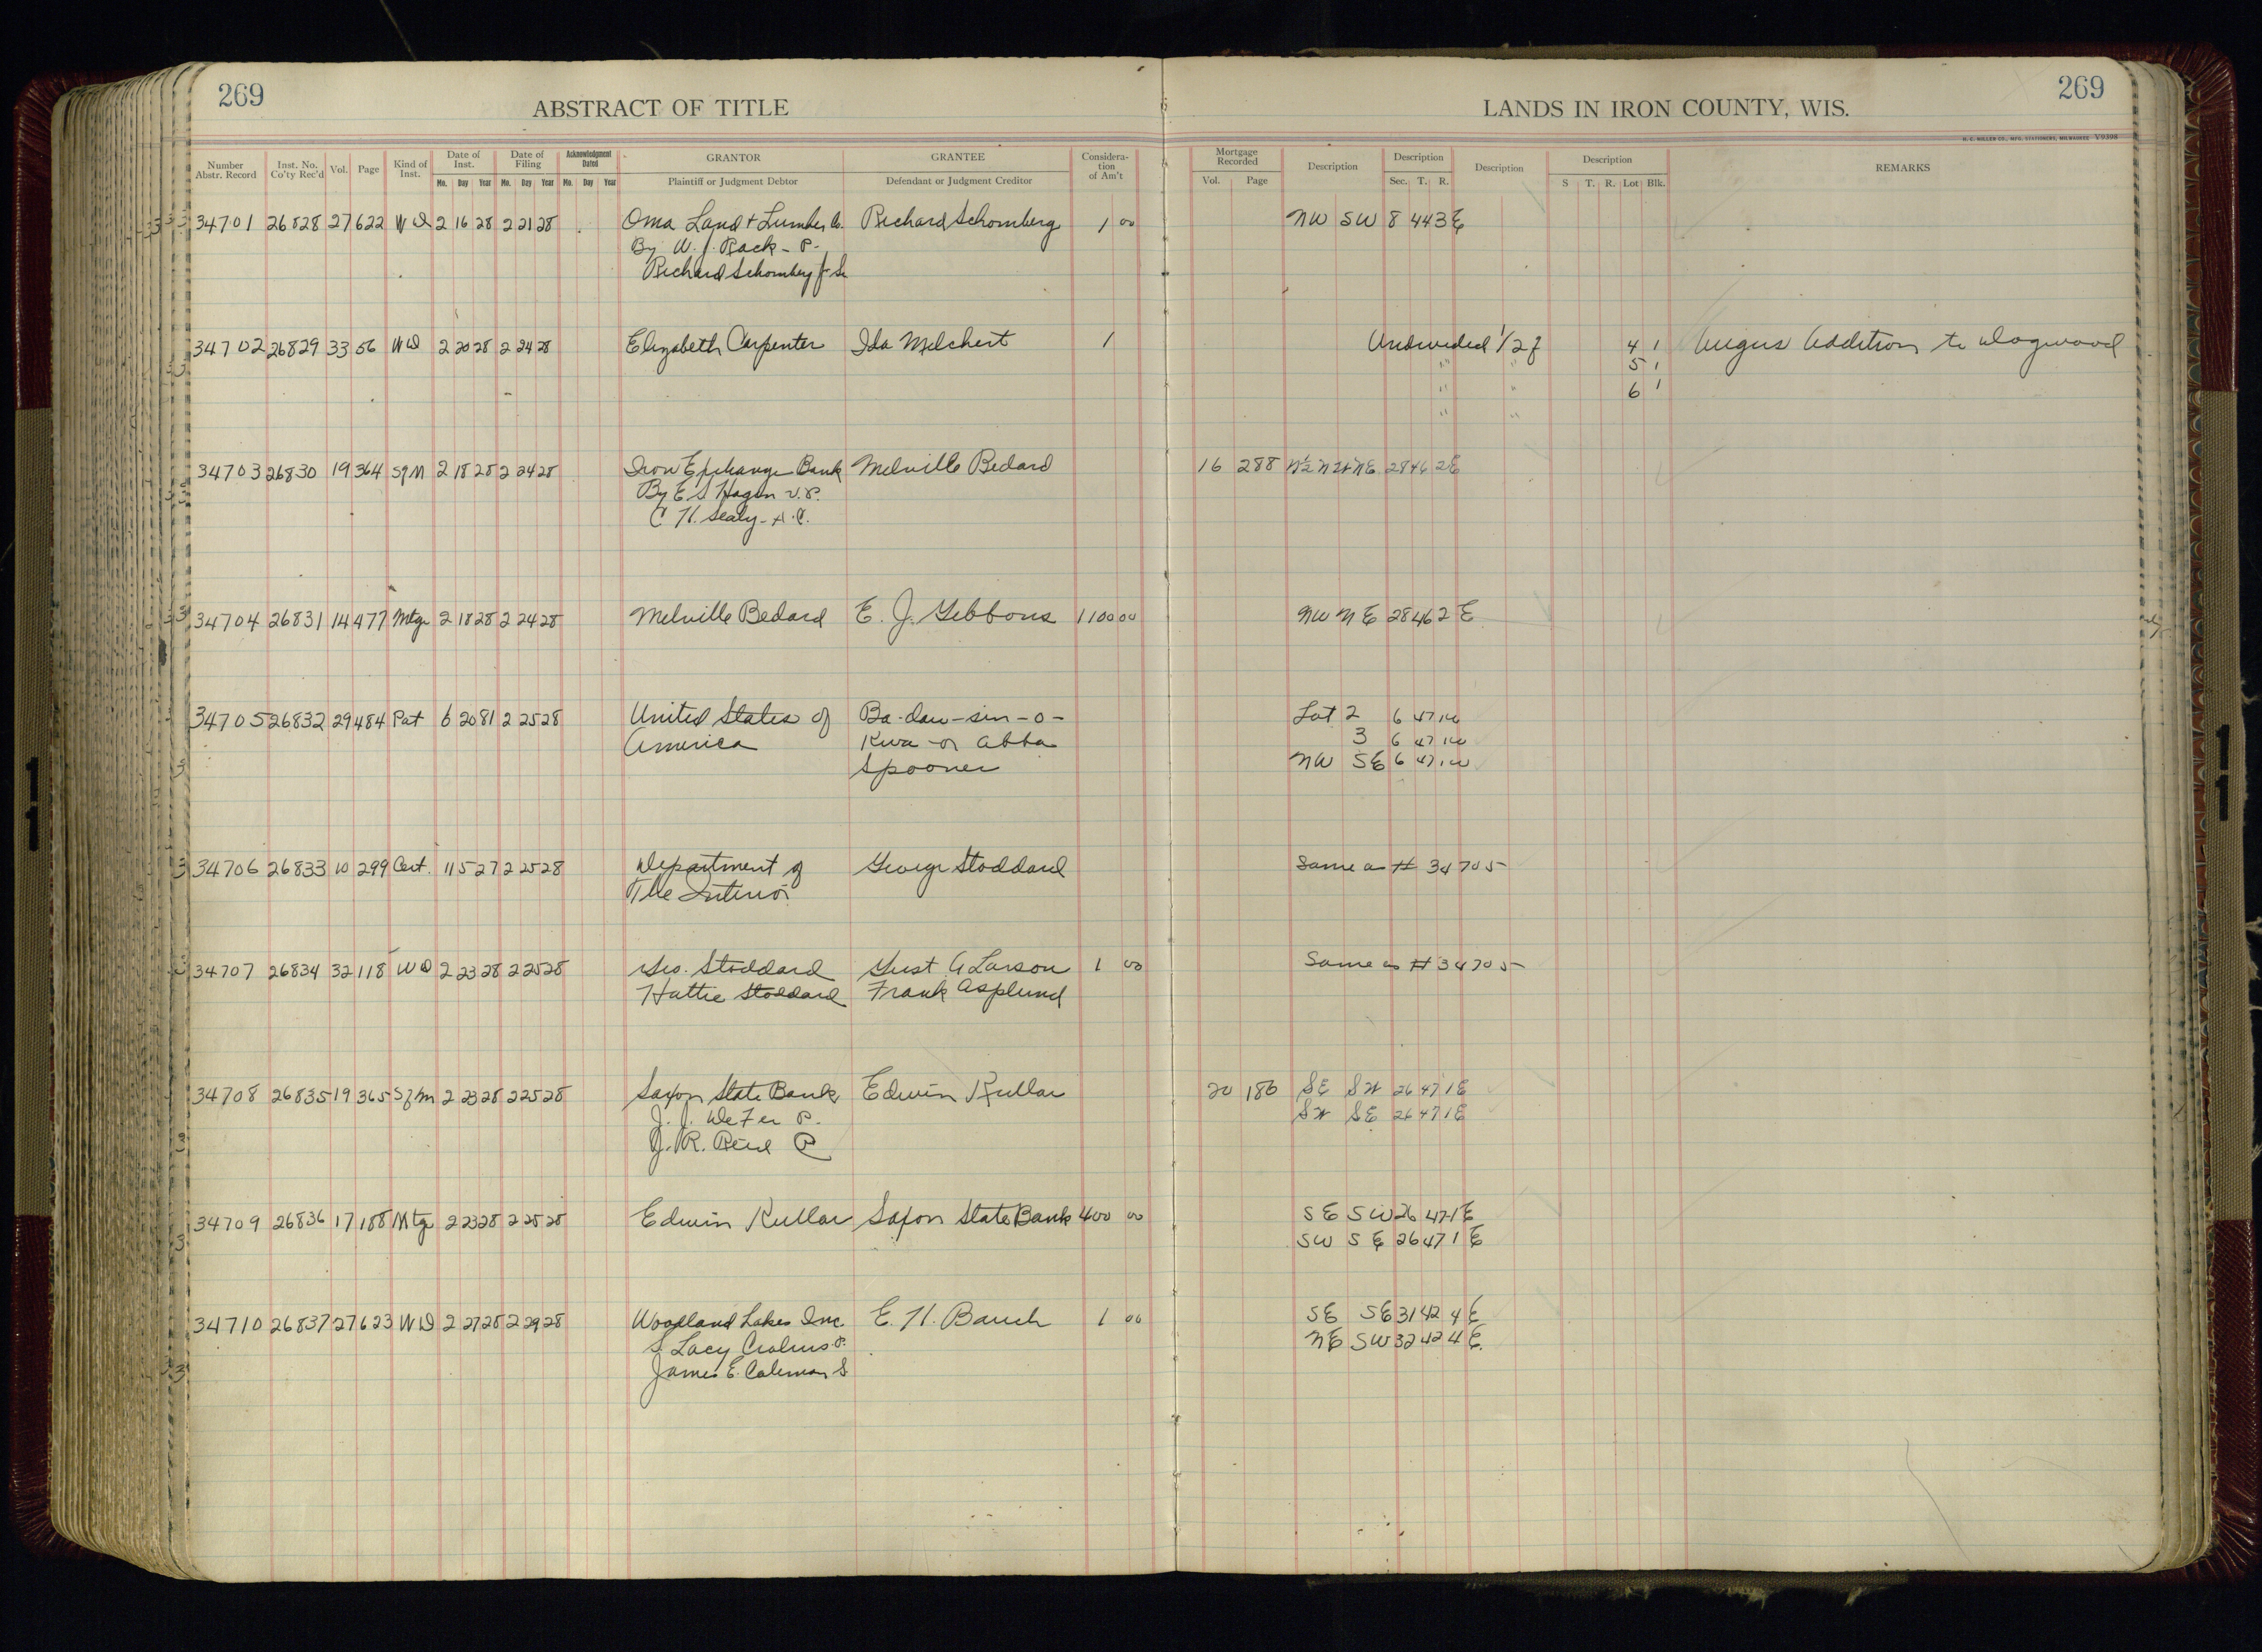 269
269
ABSTRACT OF TITLE
LANDS IN IRON COUNTY, WIS.
H. C. MILLER CO., MFG. STATIONERS, MILWAUKEE V9398
Number Abstr. Record Inst. No. Co'ty Rec'd Vol. Page Kind of Inst. Date of Inst. Mo. Day Year Date of Filing Mo. Day Year Acknowledgment Dated Mo. Day Year GRANTOR Plaintiff or Judgment Debtor GRANTEE Defendant or Judgment Creditor Consideration of Am't Mortgage Recorded Vol. Page Description Description Sec. T. R. Description Description S T. R. Lot Blk. REMARKS
34701 26828 27 622 WD 2 16 28 2 21 28 Oma Land + Lumber Co. Richard Schomberg 1 00 NW SW 8 44 3E
By W. J. Rack - P.
Richard Schomberg Jr Se
34702 26829 33 56 WD 2 20 28 2 24 28 Elizabeth Carpenter Ida Melchert 1 Undivided 1/2 of 4 1 Angus Addition to Dogwood
" " 5 1
" " 6 1
" "
34703 26830 19 364 SfM 2 18 28 2 24 28 Iron Exchange Bank Melville Bedard 16 288 28 46 2E
By E. S. Hagen V.P.
C. H. Sealy - A.C.
34704 26831 14 477 Mtge 2 18 28 2 24 28 Melville Bedard E. J. Gibbons 1100 00 NW NE 28 46 2 E
34705 26832 29 484 Pat 6 20 81 2 25 28 United States of Ba-daw-sin-o- Lot 2 6 47 1W
America Kwa - or Abba 3 6 47 1W
Spooner NW SE 6 47 1W
34706 26833 10 299 Cert. 11 5 27 2 25 28 Department of George Stoddard Same as # 34705
The Interior
34707 26834 32 118 WD 2 23 28 2 25 28 Geo. Stoddard Gust A Larson 1 00 Same as # 34705
Hattie Stoddard Frank Asplund
34708 26835 19 365 SfM 2 23 28 2 25 28 Saxon State Bank Edwin Kullar 20 180 SE SW 26 47 1E
J. J. DeFer P. SW SE 26 47 1E
J. R. Reid C
34709 26836 17 188 Mtge 2 23 28 2 25 28 Edwin Kullar Saxon State Bank 400 00 SE SW 26 47 1E
SW SE 26 47 1 E
34710 26837 27 623 WD 2 27 28 2 29 28 Woodland Lakes Inc E. H. Bauch 1 00 SE SE 31 42 4 E
S Lacy P. NE SW 32 42 4 E.
James E. Coleman S